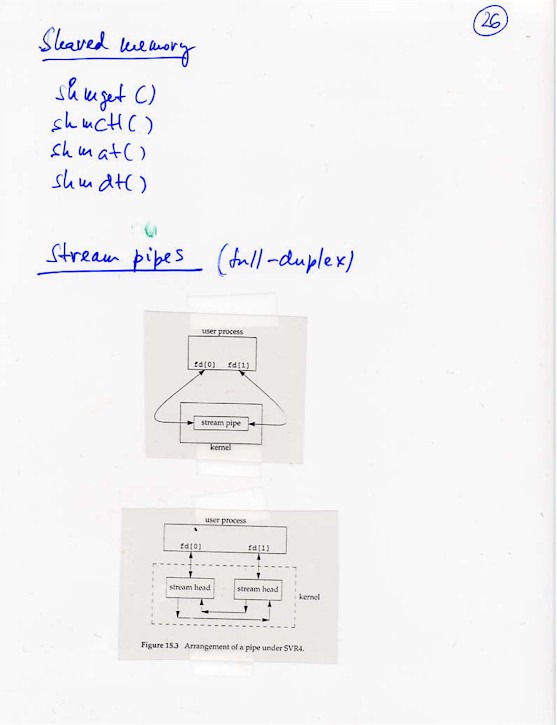 26
Shared memory
shmget ()
shmctl ()
shmat ()
shmdt ()
Stream pipes (full-duplex)
user process
fd[0] fd[1]
stream pipe
kernel
user process
fd[0] fd[1]
stream head stream head
kernel
Figure 15.3 Arrangement of a pipe under SVR4.